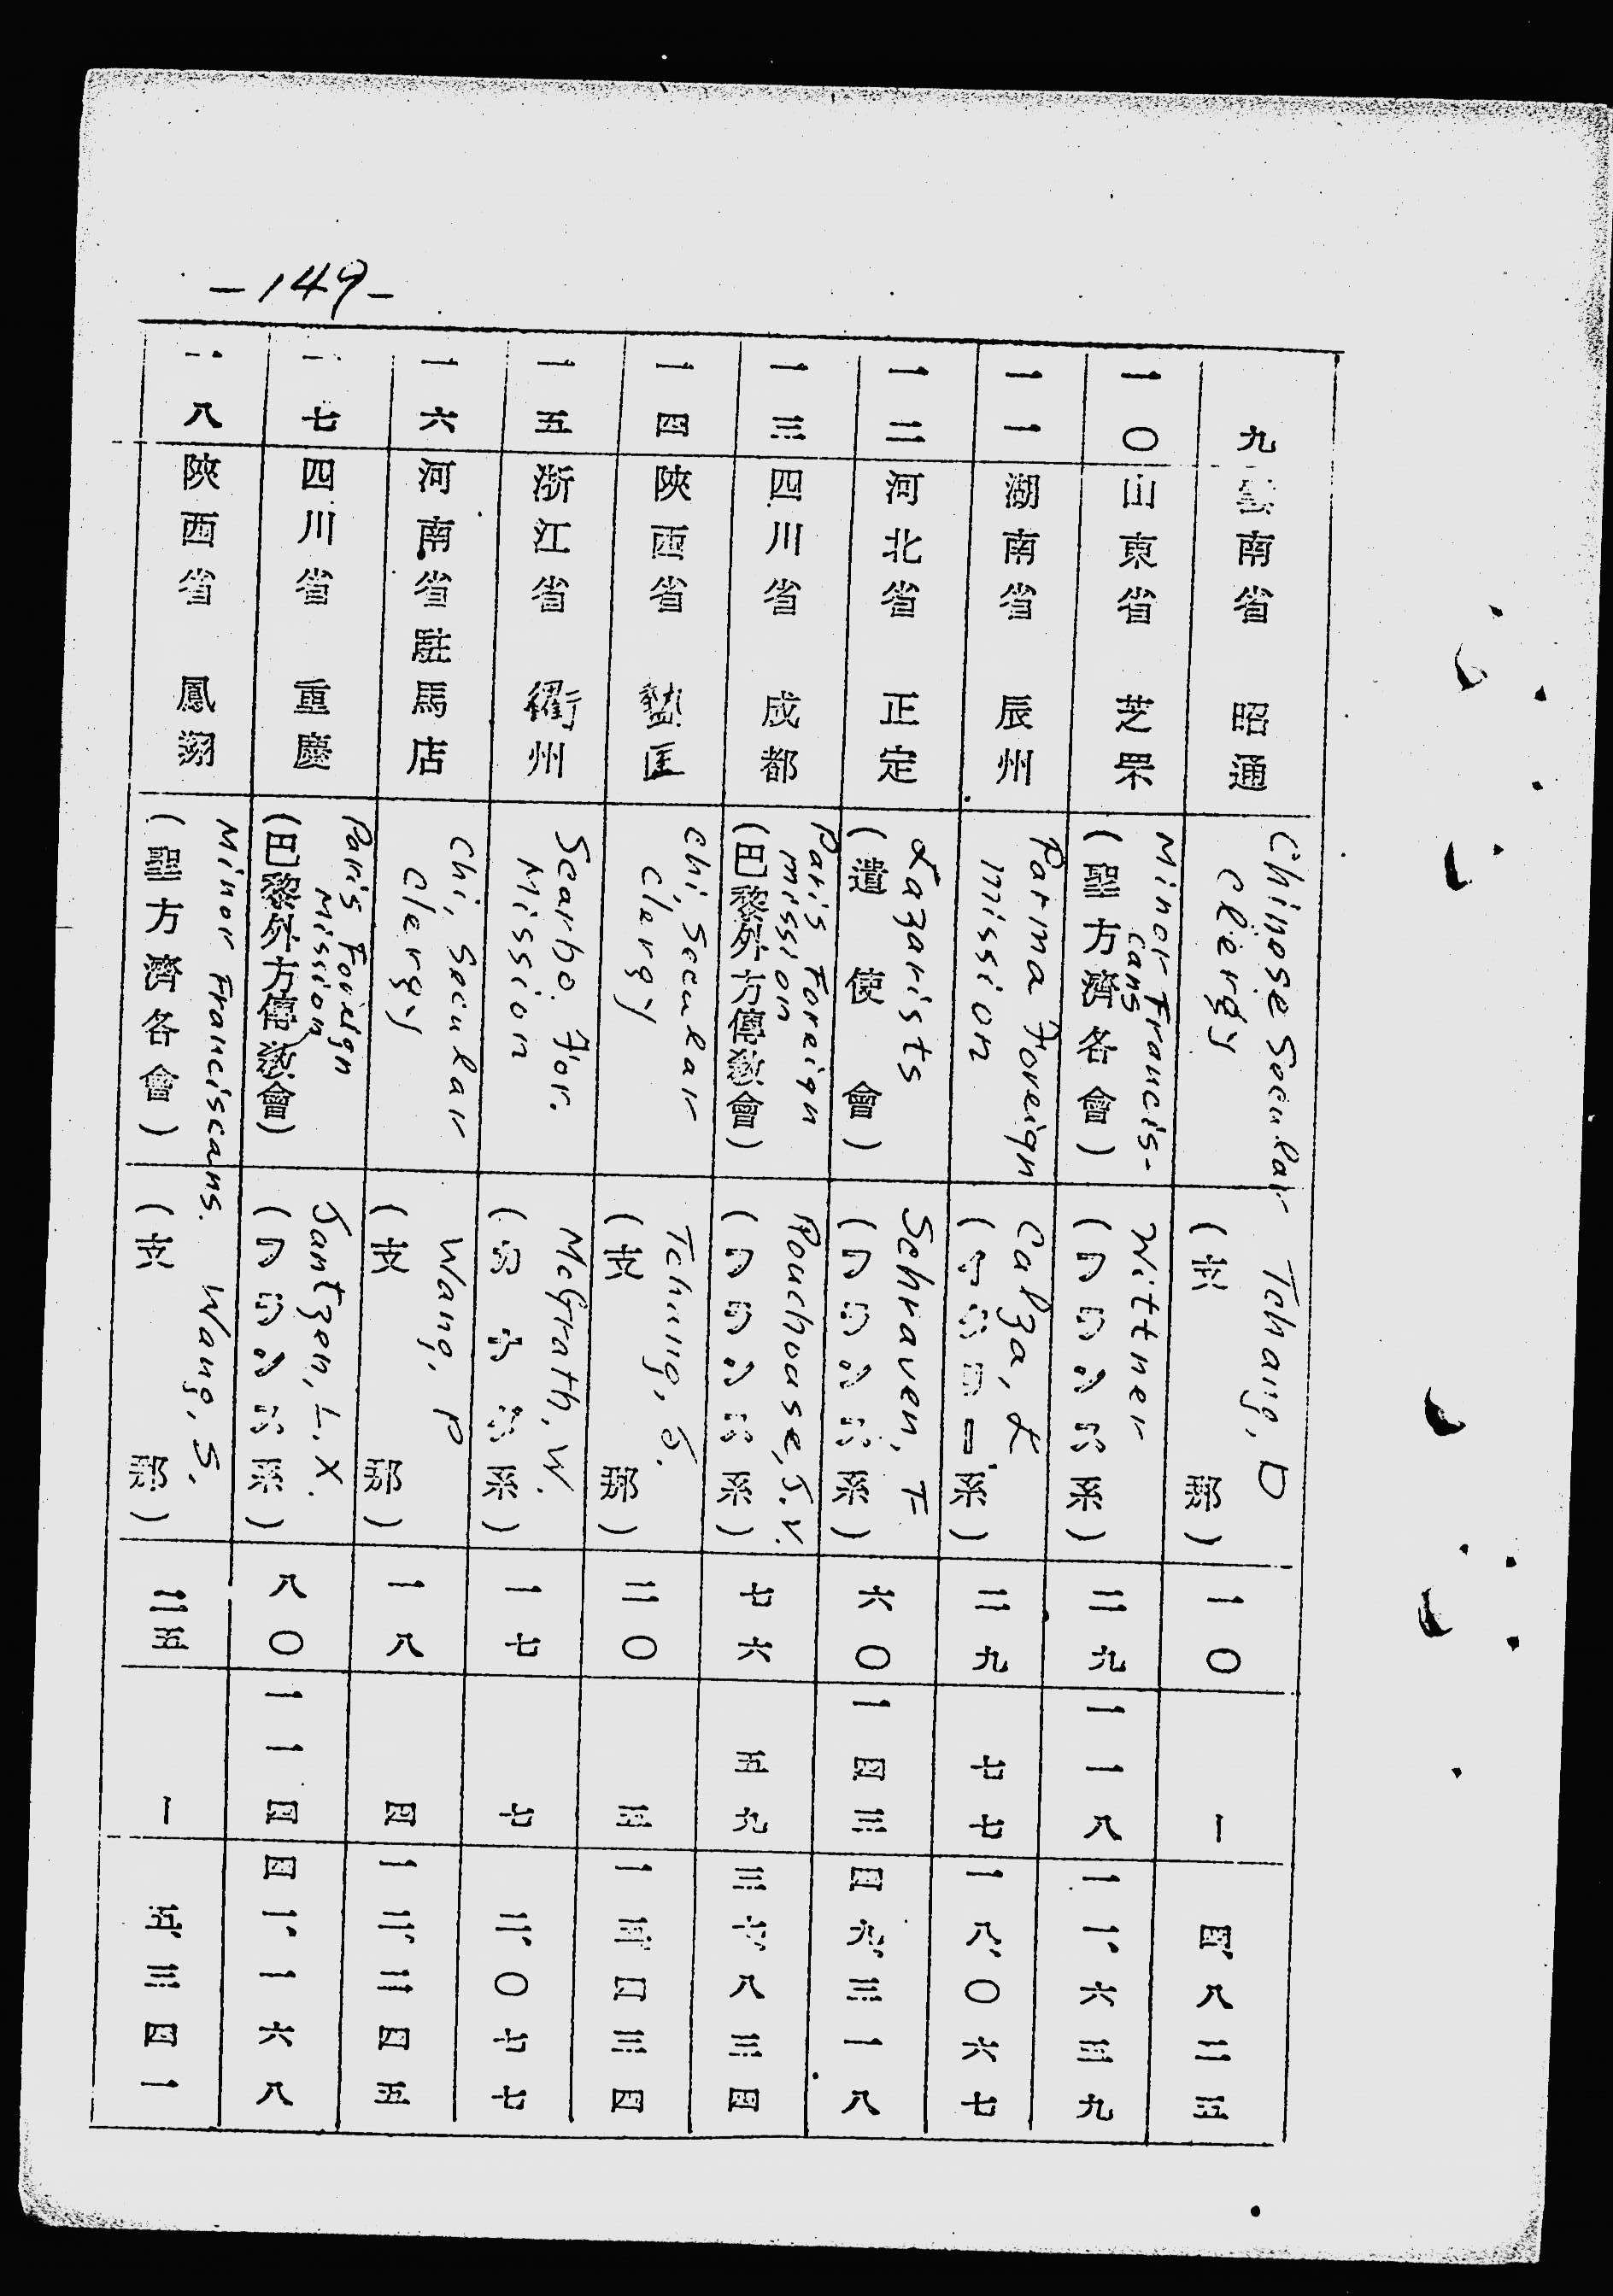 -149-
九
雲南省 昭通
Chinese Secular
Clergy
Tchang, D
(支那)
一〇
ー
四、八二五
一〇
山東省 芝罘
Minor Francis-
cans
(聖方濟各會)
Wittner
系)
二九
一一八
一一、六三九
一一
湖南省 辰州
Parma Foreign
mission
Calza, L
系)
二九
七七
一八、〇六七
一二
河北省 正定
Lazarists
(遣使會)
Schraven, F
系)
六〇
一四三
四九、三一八
一三
四川省 成都
Paris Foreign
mission
(巴黎外方傳敎會)
Rouchouse, J.V.
系)
七六
五九
三七、八三四
一四
陝西省
Chi, Secular
Clergy
(支那)
二〇
五
一三、四三四
一五
浙江省 衢州
Scarbo. For.
Mission
McGrath, W.
系)
一七
七
二、〇七七
一六
河南省 駐馬店
Chi, Secular
Clergy
Wang, P
(支那)
一八
四
一二、二四五
一七
四川省 重慶
Paris Foreign
Mission
(巴黎外方傳敎會)
Jantzen, L.X.
系)
八〇
一一四
四一、一六八
一八
陝西省 鳳翔
Minor Franciscans.
(聖方濟各會)
Wang, S.
(支那)
二五
ー
五、三四一